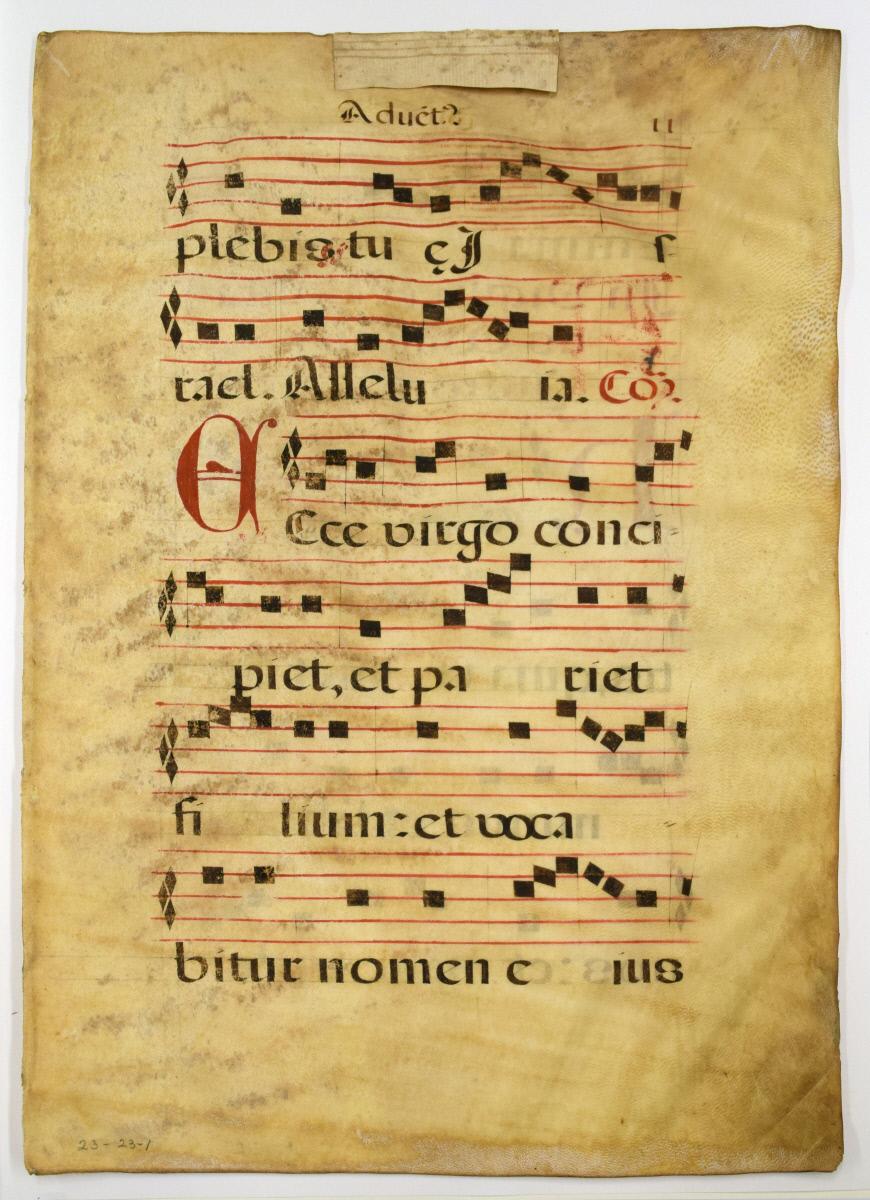 Aduēt⁹ 11
plebis tu ę J s
rael. Allelu ia. Cōꝫ.
Ecce virgo conci
piet, et pa riet
fi lium: et voca
bitur nomen e ius
23-23-1